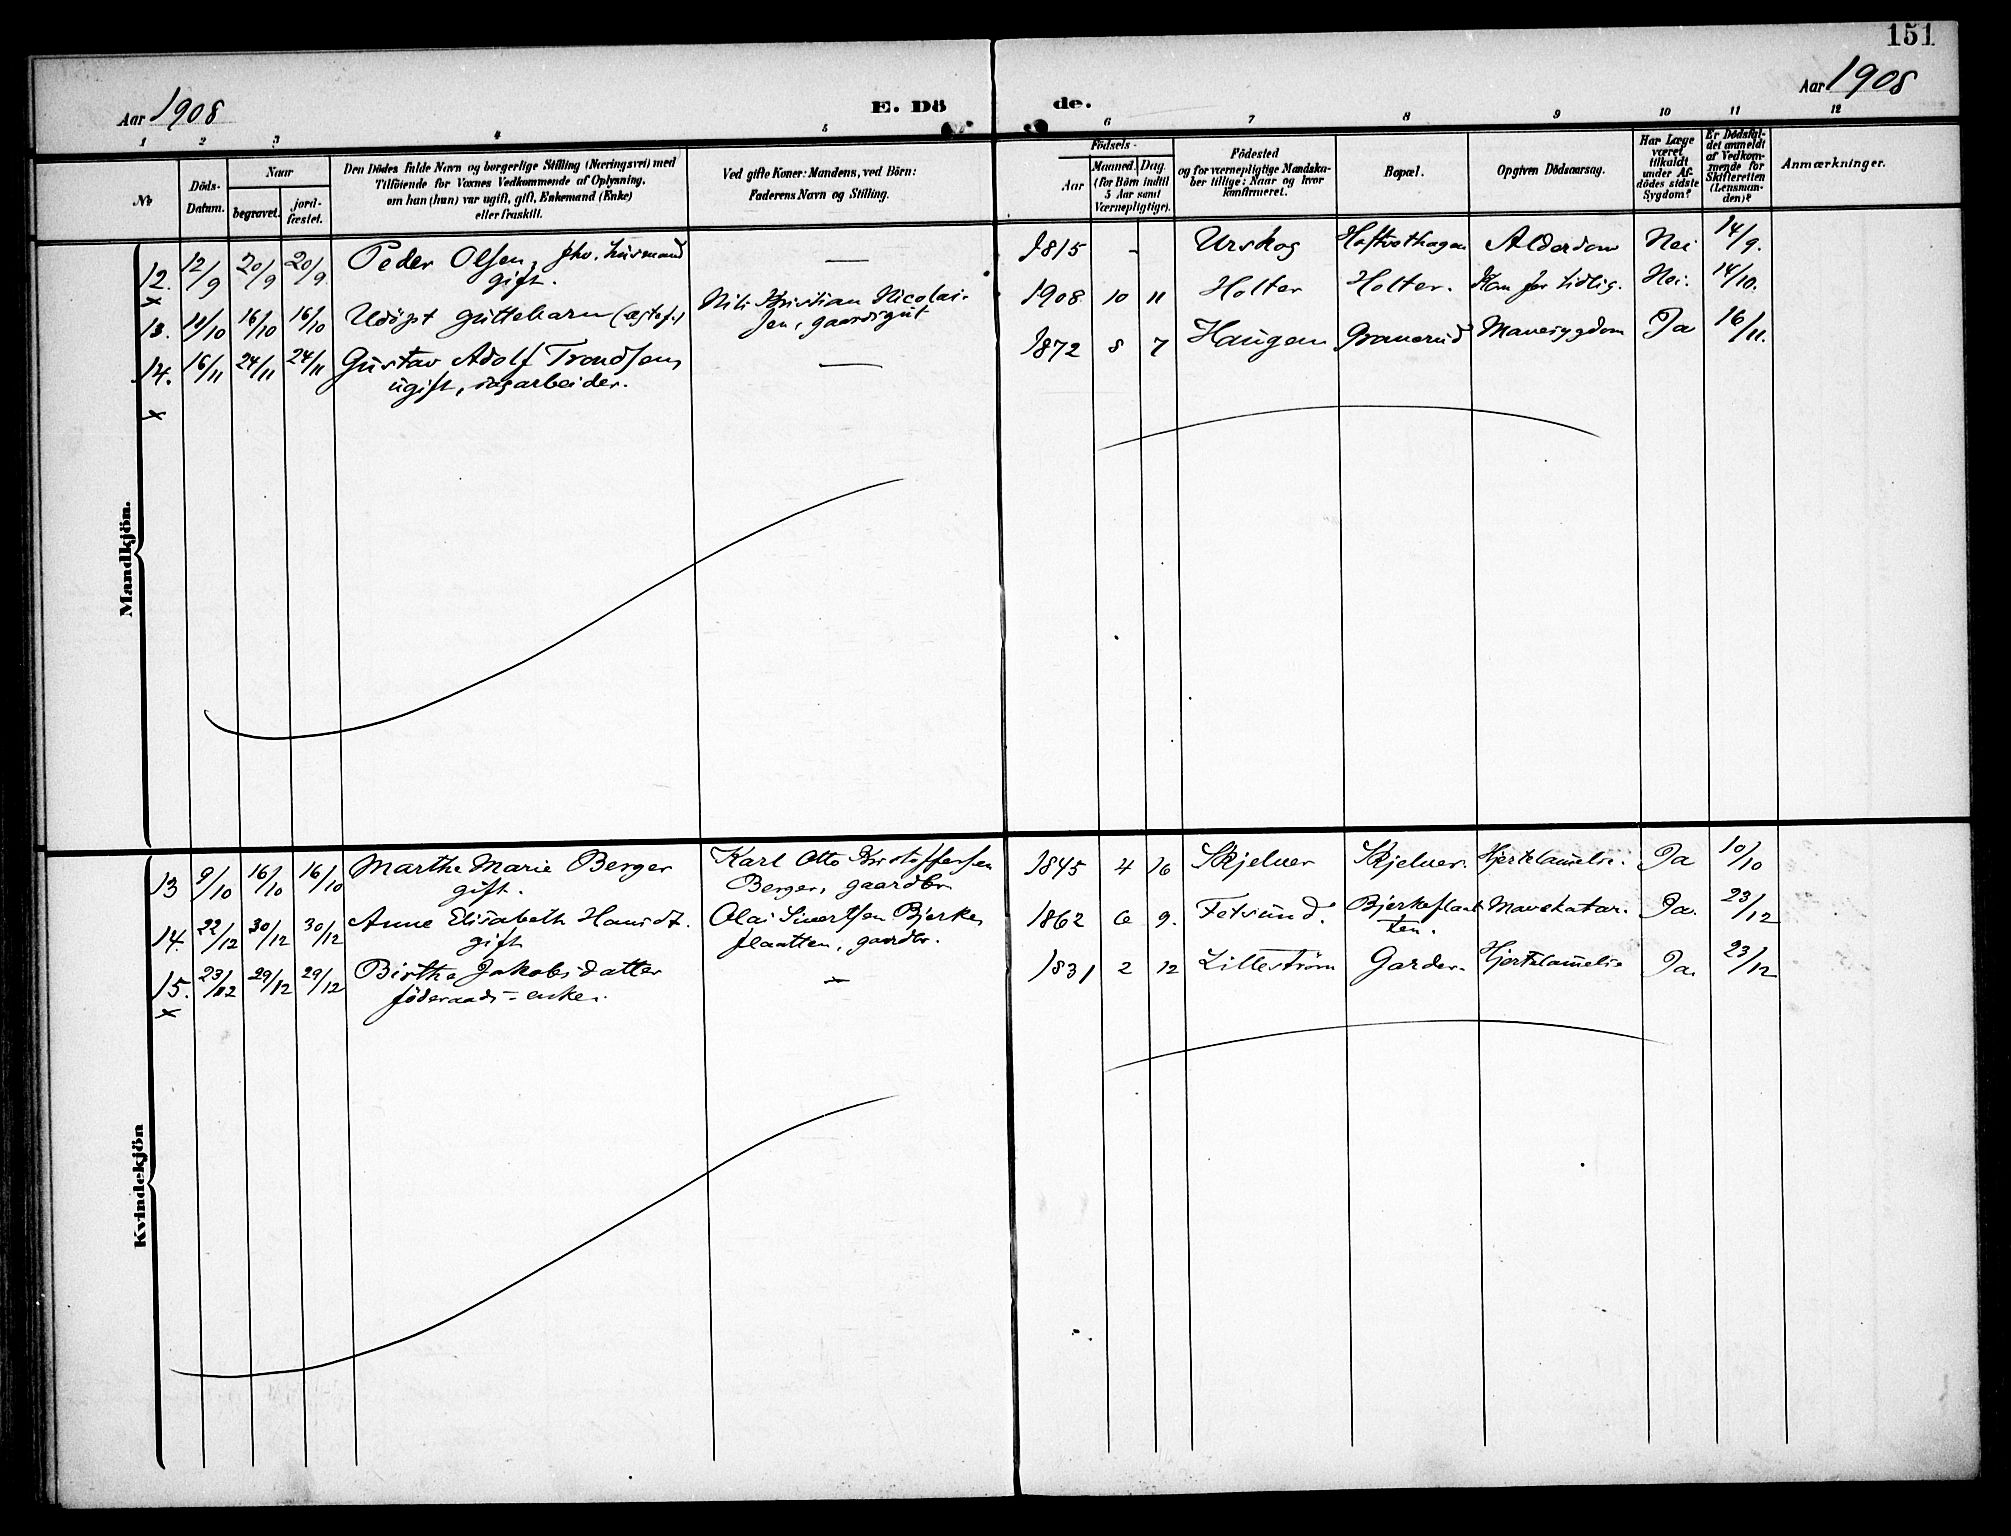 151
Aar 1908
E. Dö
de.
Aar 1908
1 2 3 4 5 6 7 8 9 10 11 12
No
Döds-
Datum.
Naar
begravet.
jord-
fæstet.
Den Dödes fulde Navn og borgerlige Stilling (Næringsvei) med
Tilföiende for Voxnes Vedkommende af Oplysning,
om han (hun) var ugift, gift, Enkemand (Enke)
eller fraskilt.
Ved gifte Koner: Mandens, ved Börn:
Faderens Navn og Stilling.
Födsels-
Aar
Maaned. Dag.
(for Börn indtil
5 Aar samt
Værnepligtige).
Födested
og for værnepligtige Mandska-
ber tillige: Naar og hvor
konfirmeret.
Bopæl.
Opgiven Dödsaarsag.
Har Læge
været
tilkaldt
under Af-
dödes sidste
Sygdom?
Er Dödsfal-
det anmeldt
af Vedkom-
mende for
Skifteretten
(Lensman-
den)?
Anmærkninger.
Mandkjön.
12. 12/9 20/9 20/9 Peder Olsen, fhv. husmand — 1815 - Urskog Alderdom Nei 14/9.
x gift.
13. 11/10 16/10 16/10 Udöpt guttebarn Kristian Nicolai- 1908 10 11 Holter Holter. Kom for tidlig. Nei. 14/10.
sen, gaardsgut
14. 16/11 24/11 24/11 Gustav Adolf Trondsen, — 1872 8 7 Haugen Granerud Mavesygdom Ja 16/11.
ugift, sagarbeider.
x
Kvindekjön
13 9/10 16/10 16/10 Marthe Marie Berger Karl Otto Kristoffersen 1845 4 16 Skjelver Skjelver. Hjertelammelse. Ja 10/10
gift. Berger, gaardbr
14. 22/12 30/12 30/12 Anne Elisabeth Hansdt. Olai Sivertsen Bjerke- 1862 6 9. Fetsund. Bjerkeflaat- Mavekatar. Ja. 23/12
gift flaatten, gaardbr. ten.
15. 23/12 29/12 29/12 Birthe Jakobsdatter — 1831 2 12 Lilleström Garder. Hjertelammelse Ja. 23/12
x föderaads-enke.